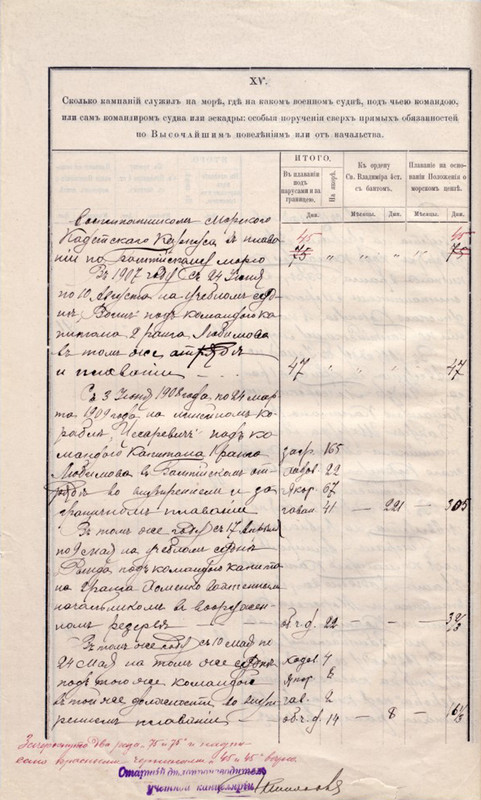 XV.
Сколько кампаній служилъ на морѣ, гдѣ на какомъ военномъ суднѣ, подъ чьею командою,
или самъ командиромъ судна или эскадры: особыя порученія сверхъ прямыхъ обязанностей
по Высочайшимъ повелѣніямъ или отъ начальства.
ИТОГО.
Въ плаваніи подъ парусами и за границею.
На якорѣ.
Къ ордену Св. Владиміра 4ст. съ бантомъ.
Плаваніе на основаніи Положенія о морскомъ цензѣ.
Дни.
Мѣсяцы.
Дни.
Мѣсяцы.
Дни.
Воспитанникомъ Морского
45 45
Кадетскаго Корпуса въ плава
75 " " " " 75
ніи по Балтійскому морю
Въ 1907 году съ 24 Іюня
по 10 Августа на учебномъ суд-
нѣ Воинъ подъ командою ка
питана 2 ранга Любимова
въ томъ же отрядѣ
и плаваніи 47 " " " " 47
Съ 3 Іюня 1908 года по 24 мар
та 1909 года на линейномъ ко
раблѣ „Цесаревичъ" подъ ко
мандою Капитана 1 ранга загр. 165
Любимова въ Балтійскомъ от- ходов. 22
рядѣ во внутреннемъ и за якор. 67
граничномъ плаваніи гаван 41 — 221 — 305
Въ томъ же году съ 17 Апрѣля
по 9 мая на учебномъ суднѣ
подъ командою капита
на 2 ранга
начальникомъ въ вооружен-
номъ резервѣ об.ч.д. 22 — — —
Въ томъ же году съ 10 мая по
24 мая на томъ же суднѣ ходов. 4
подъ тою же командою якор. 8
въ той же должности во внут гав. 2
реннемъ плаваніи об.ч.д. 14 — 8 —
Зачеркнуто два раза „75 и 75" и надпи
сано красными чернилами „45 и 45" вѣрно.
Старшій дѣлопроизводитель
учетной канцеляріи